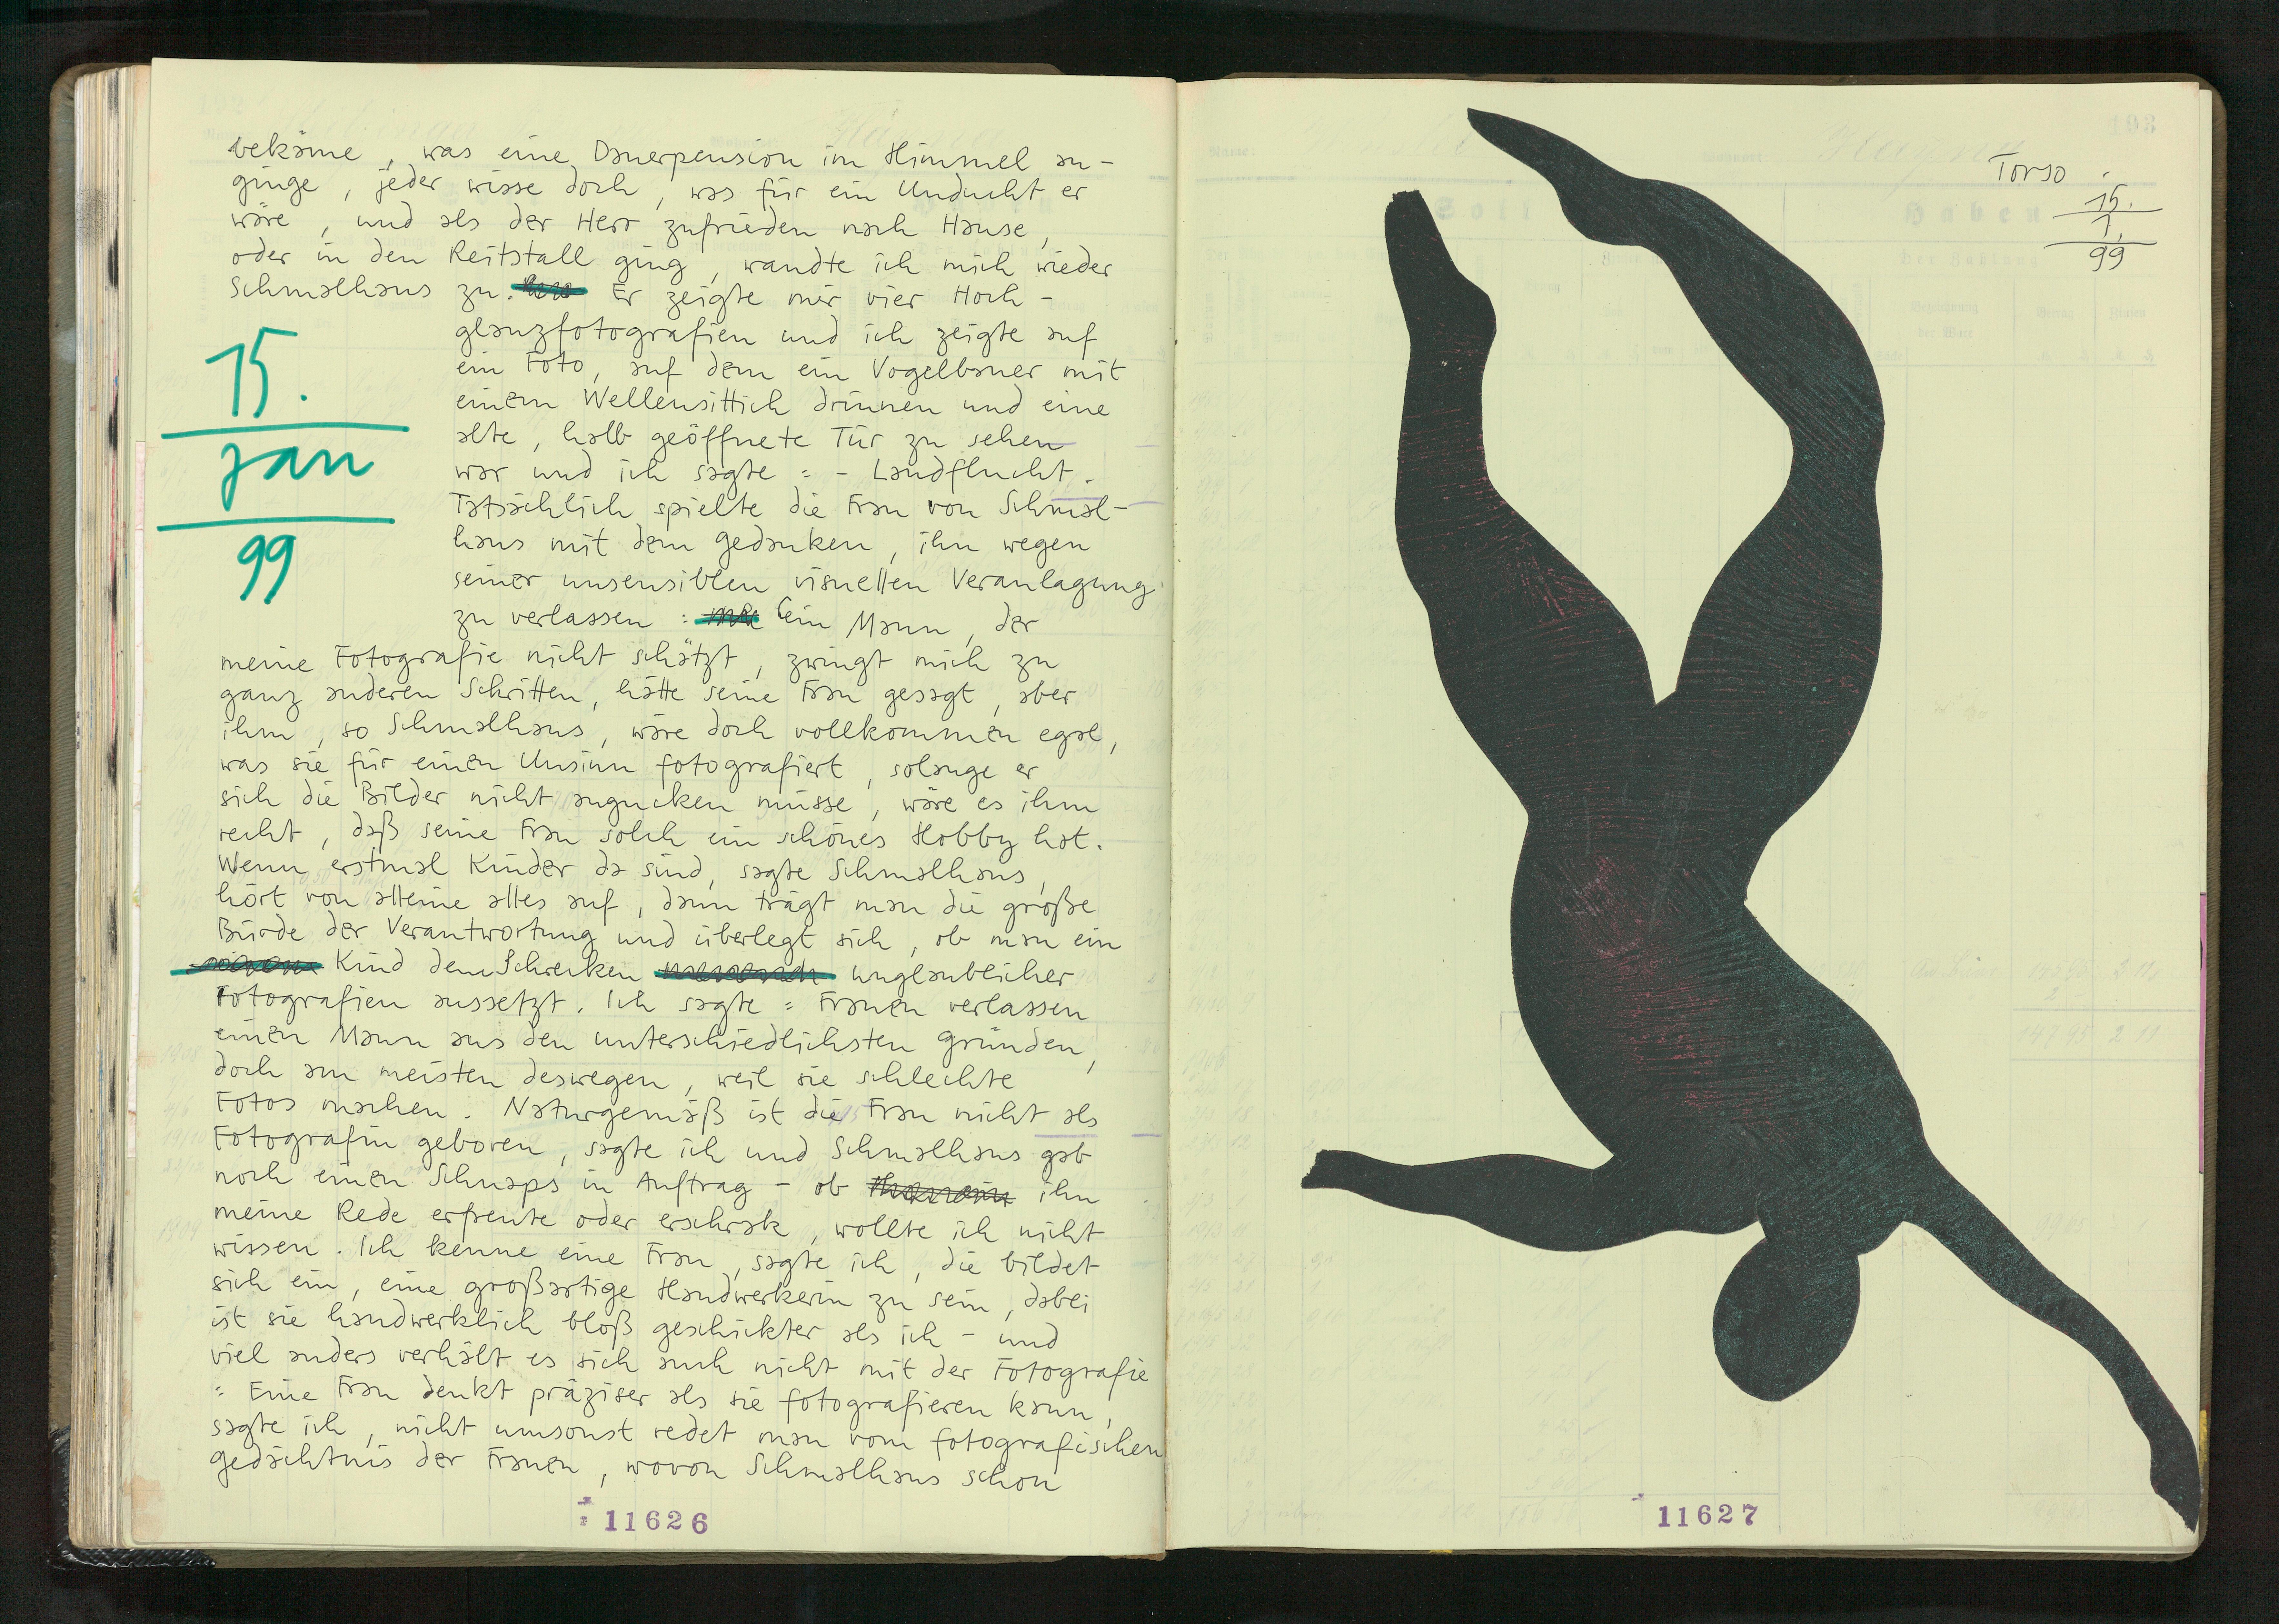 bekäme, was eine Dauerpension im Himmel an-
ginge, jeder wisse doch, was für ein Unducht er
wäre, und als der Herr zufrieden nach Hause,
oder in den Reitstall ging, wandte ich mich wieder
Schmalhaus zu. Er zeigte mir vier Hoch-
glanzfotografien und ich zeigte auf
ein Foto, auf dem ein Vogelbauer mit
einem Wellensittich drinnen und eine
alte, halb geöffnete Tür zu sehen
war und ich sagte: - Landflucht.
Tatsächlich spielte die Frau von Schmal-
haus mit dem Gedanken, ihn wegen
seiner unsensiblen visuellen Veranlagung
zu verlassen: ein Mann, der
meine Fotografie nicht schätzt, zwingt mich zu
ganz anderen Schritten, hätte seine Frau gesagt, aber
ihm, so Schmalhaus, wäre doch vollkommen egal,
was sie für einen Unsinn fotografiert, solange er
sich die Bilder nicht angucken müsse, wäre es ihm
recht, daß seine Frau solch ein schönes Hobby hat.
Wenn erstmal Kinder da sind, sagte Schmalhaus,
hört von alleine alles auf, dann trägt man die große
Bürde der Verantwortung und überlegt sich, ob man ein
Kind dem Schrecken unglaublicher
Fotografien aussetzt. Ich sagte: Frauen verlassen
einen Mann aus den unterschiedlichsten Gründen,
doch am meisten deswegen, weil sie schlechte
Fotos machen. Naturgemäß ist die Frau nicht als
Fotografin geboren, sagte ich und Schmalhaus gab
noch einen Schnaps in Auftrag - ob ihn
meine Rede erfreute oder erschrak, wollte ich nicht
wissen. Ich kenne eine Frau, sagte ich, die bildet
sich ein, eine großartige Handwerkerin zu sein, dabei
ist sie handwerklich bloß geschickter als ich - und
viel anders verhält es sich auch nicht mit der Fotografie
: Eine Frau denkt präziser als sie fotografieren kann,
sagte ich, nicht umsonst redet man vom fotografischen
Gedächtnis der Frauen, wovon Schmalhaus schon
15.
Jan
99
11626
193
Torso
15.
1.
99
Soll
Haben
11627